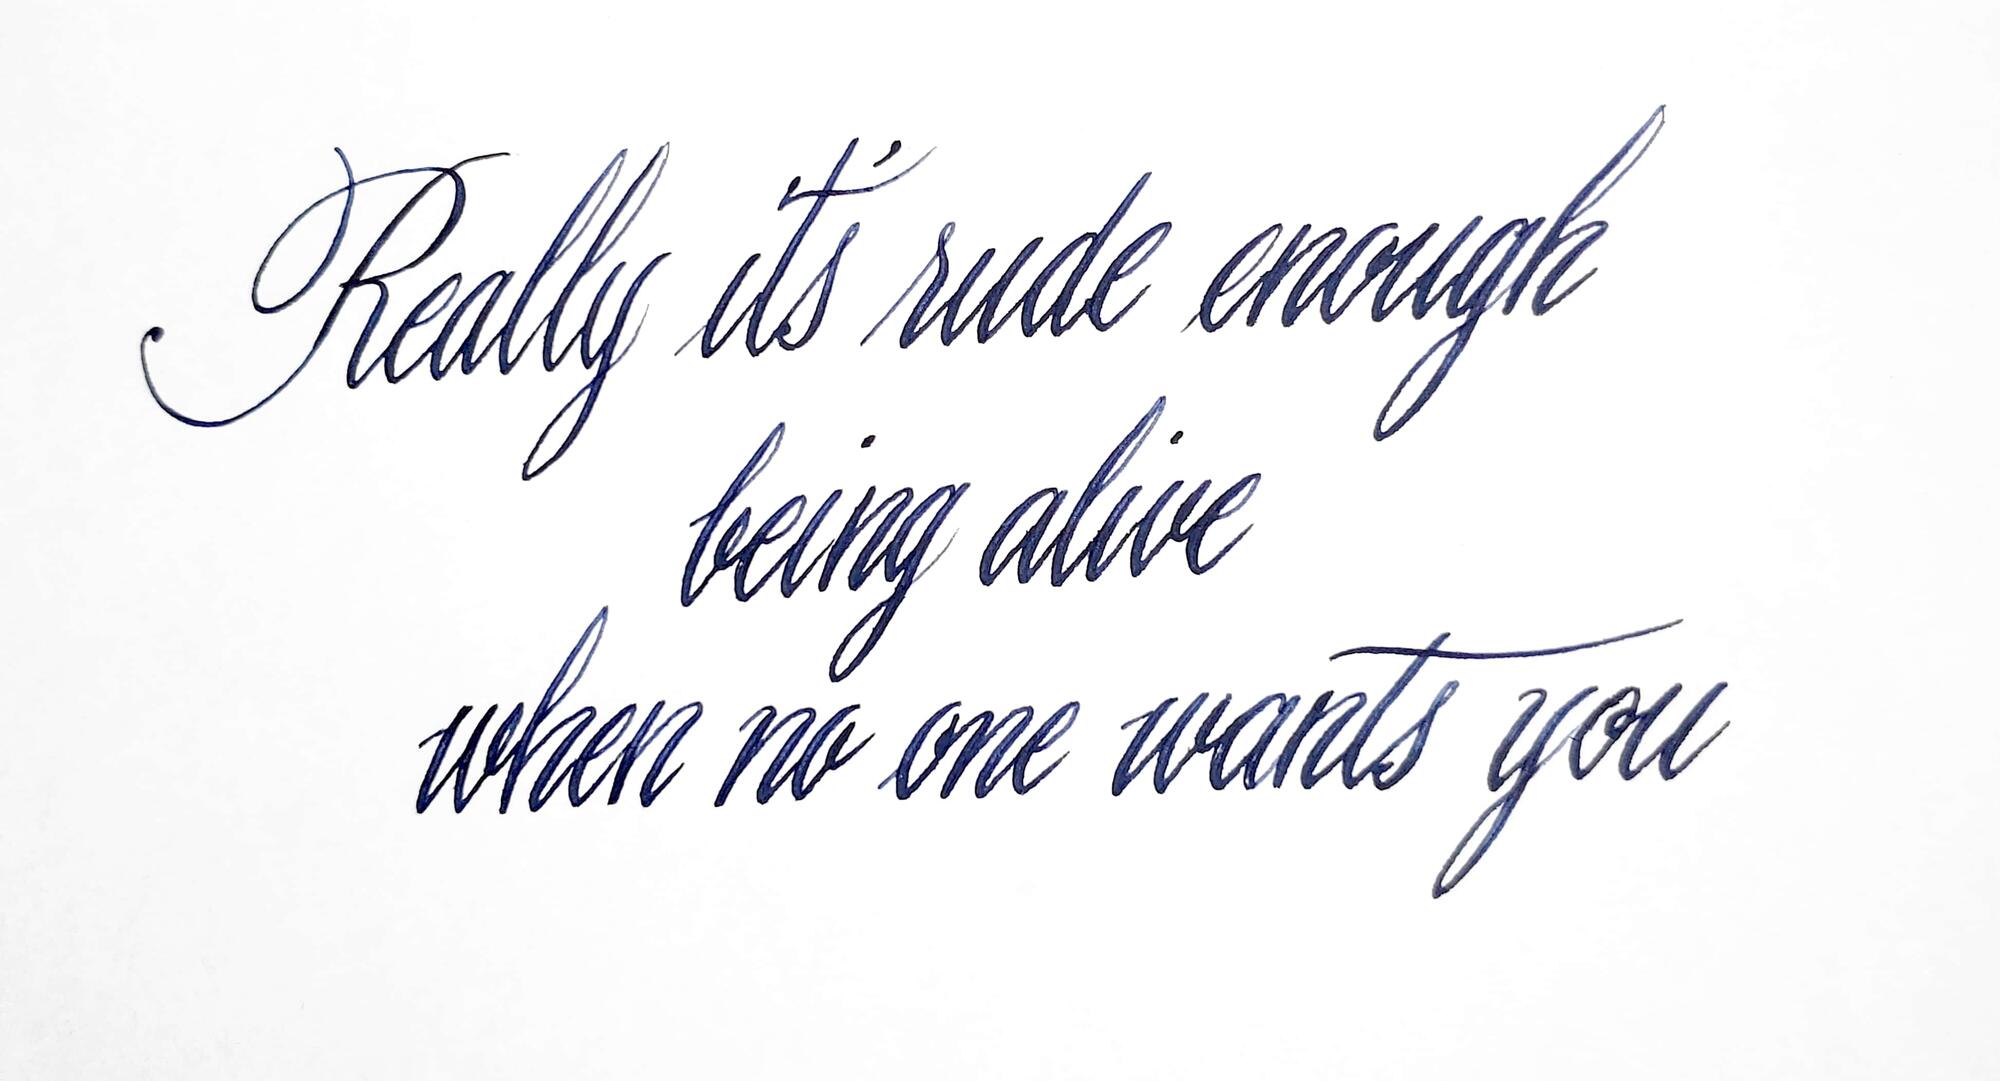 Really it's rude enough
being alive
when no one wants you